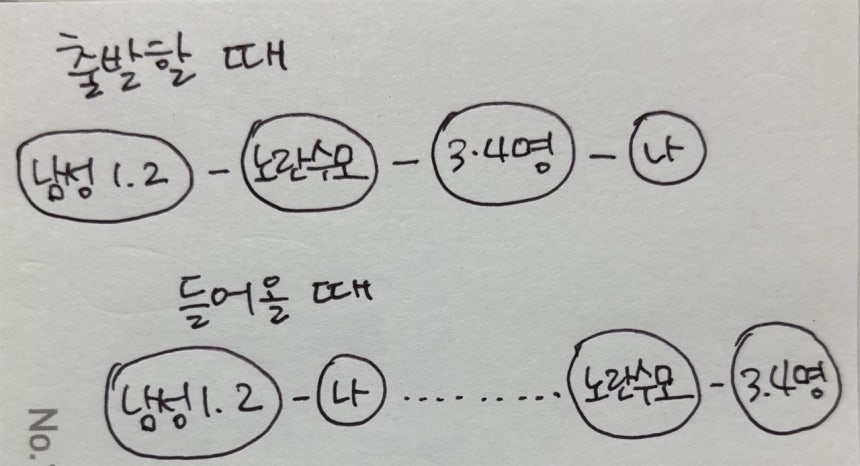 출발할 때
남성 1.2 - 노란수모 - 3.4명 - 나
들어올 때
남성 1.2 - 나 .......... 노란수모 - 3.4명
No.